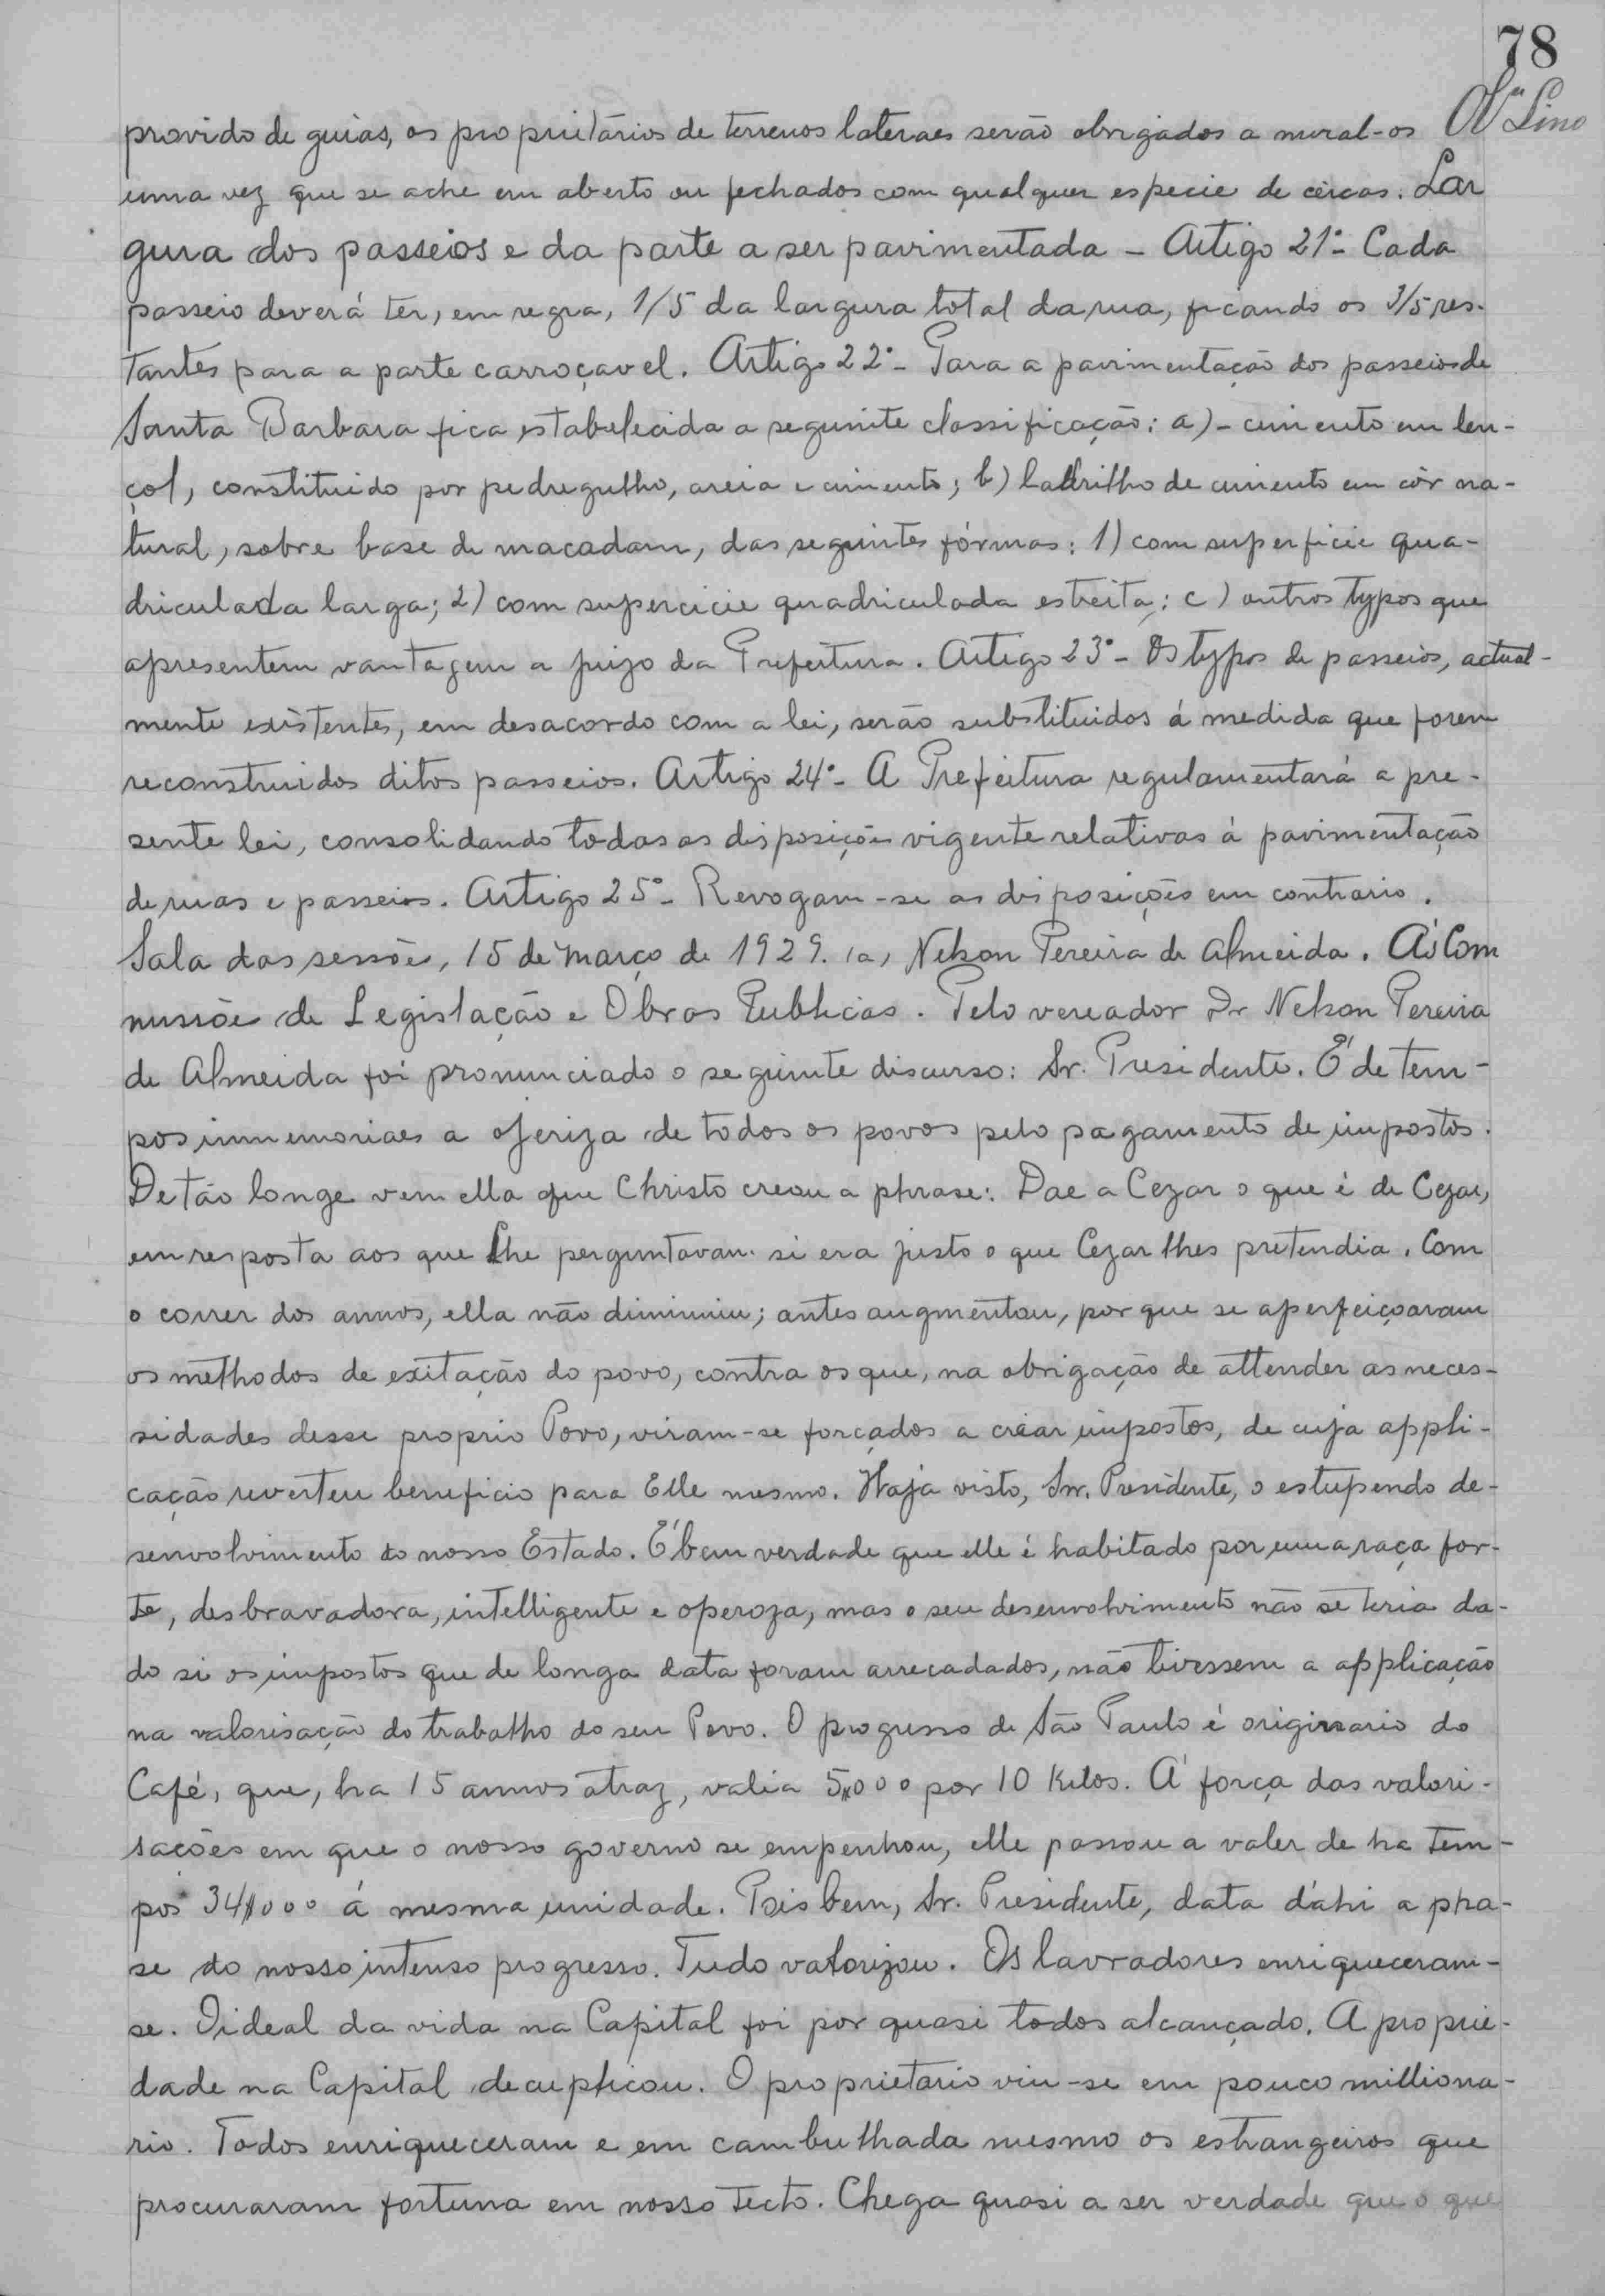 78
Lino
provido de guias, os proprietários de terrenos lateraes serão obrigados a mural-os
uma vez que se ache em aberto ou fechados com qualquer especie de cercas. Lar
gura dos passeios e da parte a ser pavimentada - Artigo 21º - Cada
passeio deverá ter, em regra, 1/5 da largura total da rua, ficando os 3/5 res-
tantes para a parte carroçavel. Artigo 22º - Para a pavimentação dos passeios de
Santa Barbara fica estabelecida a seguinte classificação: a) - cimento em len-
çol, constituido por pedregulho, areia e cimento; b) ladrilho de cimento em côr na-
tural, sobre base de macadam, das seguintes fórmas: 1) com superficie qua-
driculada larga; 2) com supercicie quadriculada estreita; c) outros typos que
apresentem vantagem a juizo da Prefeitura. Artigo 23º - Os typos de passeios, actual-
mente existentes, em desacordo com a lei, serão substituidos á medida que forem
reconstruidos ditos passeios. Artigo 24º - A Prefeitura regulamentará a pre-
sente lei, consolidando todas as disposições vigente relativas á pavimentação
de ruas e passeios. Artigo 25º - Revogam-se as disposições em contrario.
Sala das sessões, 15 de março de 1929. (a) Nelson Pereira de Almeida. Ás Com
missões de Legislação e Obras Publicas. Pelo vereador Dr Nelson Pereira
de Almeida foi pronunciado o seguinte discurso: Sr. Presidente. É de tem-
pos immemoriaes a ojeriza de todos os povos pelo pagamento de impostos.
De tão longe vem ella que Christo creou a phrase: Dae a Cezar o que é de Cezar,
em resposta aos que lhe perguntavam si era justo o que Cezar lhes pretendia. Com
o correr dos annos, ella não diminuiu; antes augmentou, por que se aperfeiçoaram
os methodos de exitação do povo, contra os que, na obrigação de attender as neces-
sidades desse proprio Povo, viram-se forçados a crear impostos, de cuja appli-
cação reverteu beneficio para Elle mesmo. Haja visto, Snr. Presidente, o estupendo de-
senvolvimento do nosso Estado. É bem verdade que elle é habitado por uma raça for-
te, desbravadora, intelligente e operoza, mas o seu desenvolvimento não se teria da-
do si os impostos que de longa data foram arrecadados, não tivessem a applicação
na valorisação do trabalho do seu Povo. O progresso de São Paulo é originario do
Café, que, ha 15 annos atraz, valia 5$000 por 10 Kilos. Á força das valori-
sações em que o nosso governo se empenhou, elle passou a valer de ha tem-
pos 34$000 á mesma unidade. Pois bem, Sr. Presidente, data d'ahi a pha-
se do nosso intenso progresso. Tudo valorizou. Os lavradores enriqueceram-
se. O ideal da vida na Capital foi por quasi todos alcançado. A proprie-
dade na Capital decuplicou. O proprietario viu-se em pouco milliona-
rio. Todos enriqueceram e em cambulhada mesmo os estrangeiros que
procuraram fortuna em nosso tecto. Chega quasi a ser verdade que o que